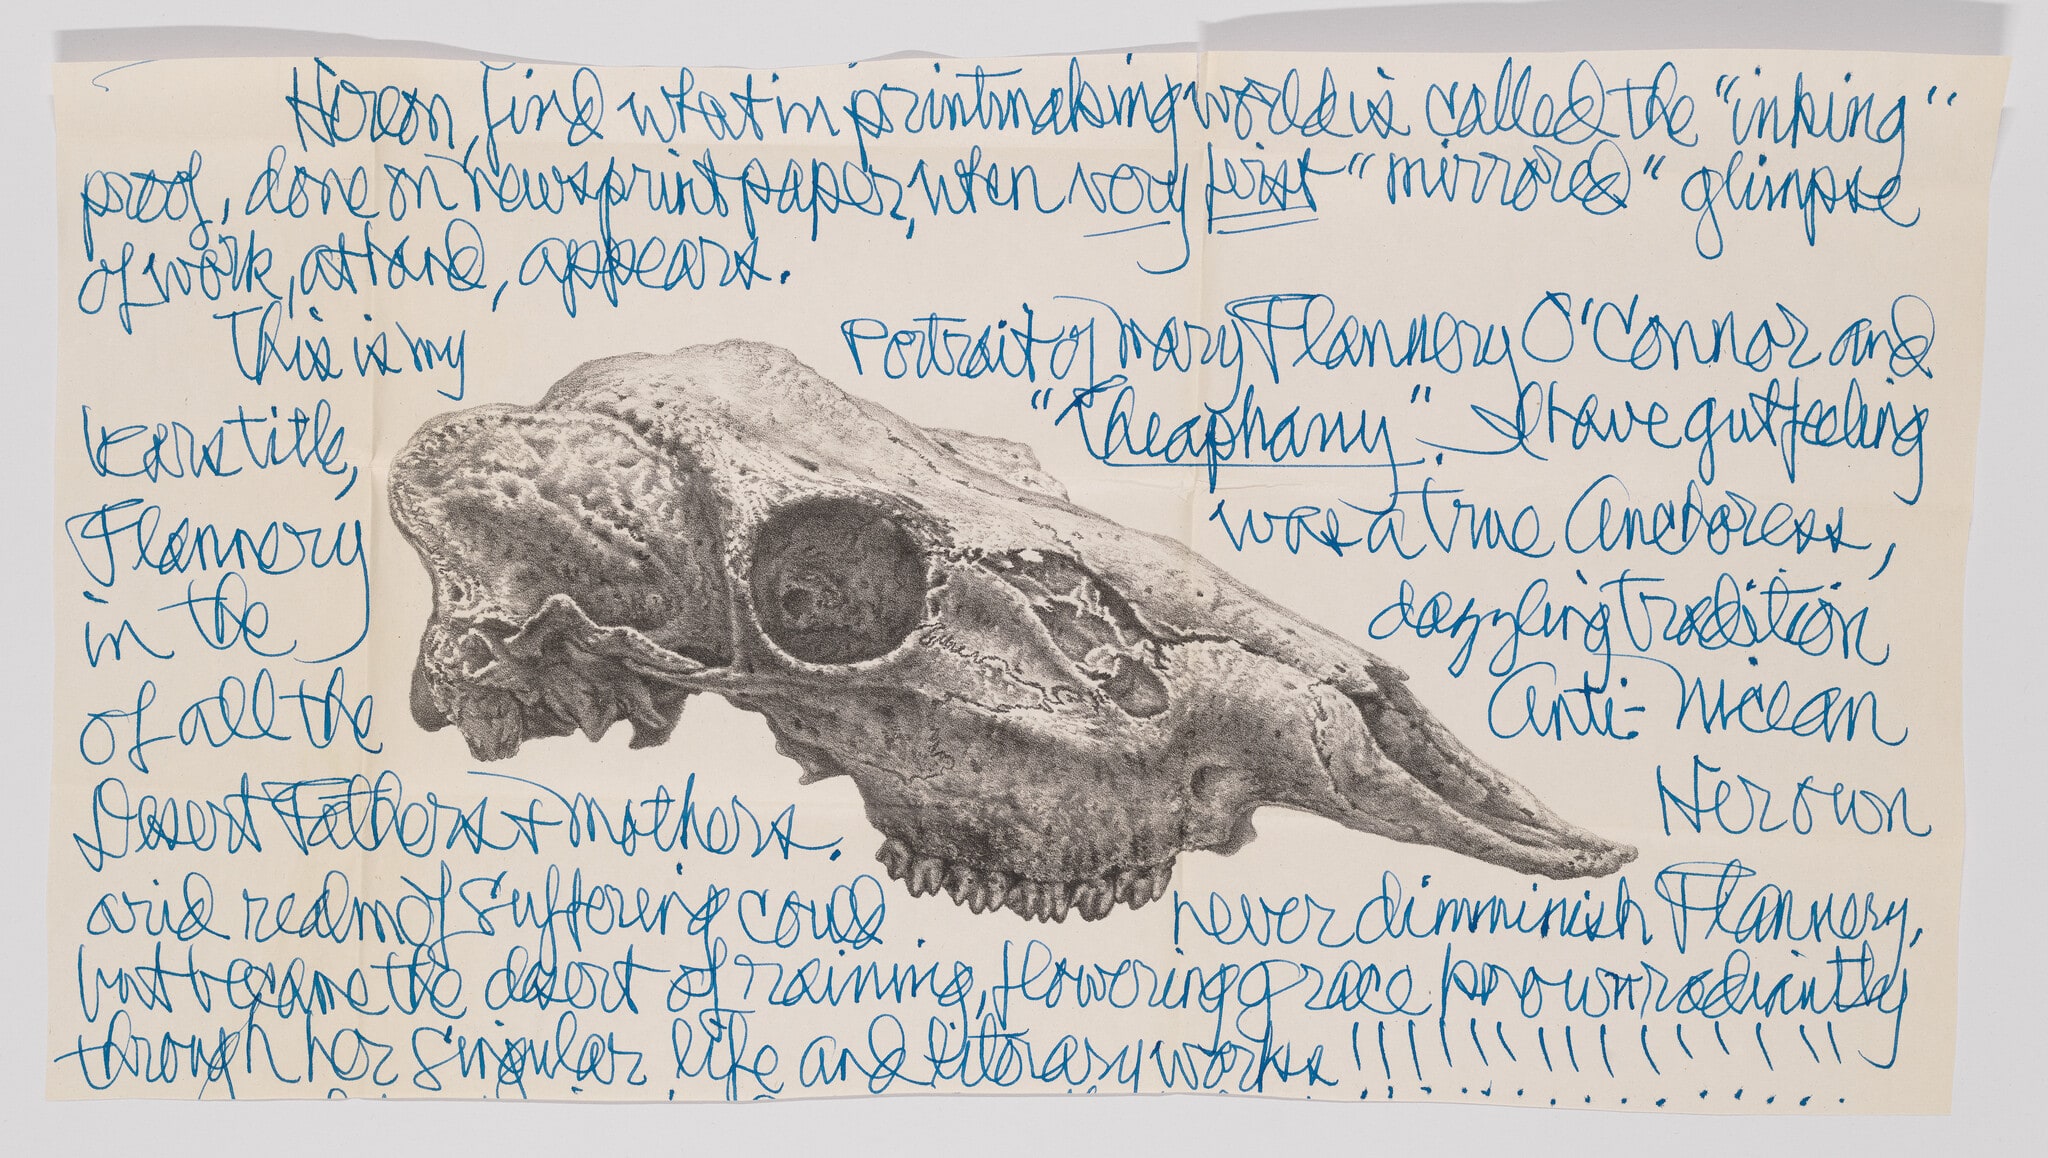 Hereon, find what in printmaking world is called the "inking"
proof, done on newsprint paper, when very first "mirrored" glimpse
of work, at hand, appears.
This is my Portrait of Mary Flannery O'Connor and
bears title, "Theaphany". I have gut feeling
Flannery was a true Anchoress,
in the dazzling tradition
of all the Anti-Nicean
Desert Fathers + Mothers. Her own
arid realm of suffering could never dimminish Flannery,
but became the desert of raining, flowering grace prown radiantly
through her singular life and literary works!!!!!!!!!!!!!!!!